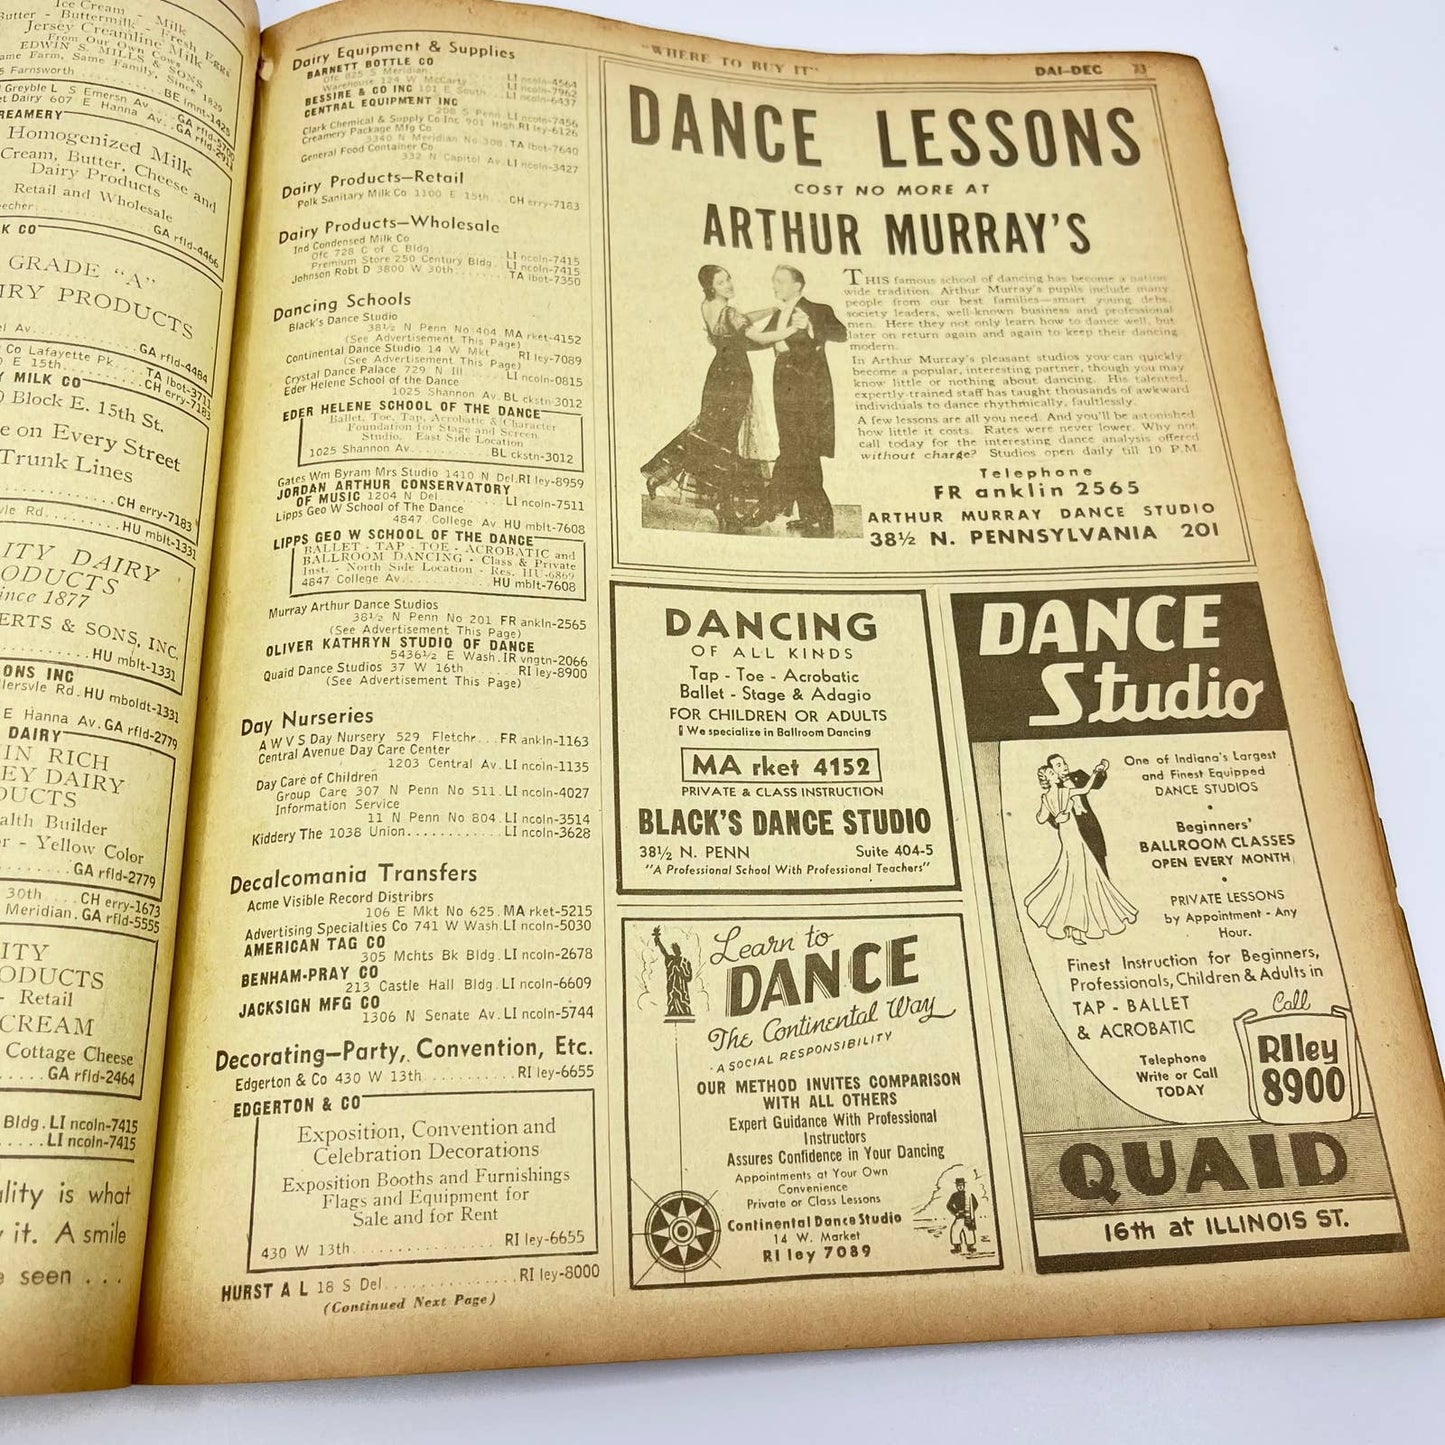 Ice Cream - Milk
Butter - Buttermilk - Fresh Eggs
Jersey Creamline Milk
From Our Own Cows
EDWIN S. MILLS & SONS
Same Farm, Same Family, Since 1829
5 Farnsworth BE lmnt-1425
Greyble L S Emersn Av GA rfld-5700
et Dairy 607 E Hanna Av GA rfld-2914
REAMERY
Homogenized Milk
Cream, Butter, Cheese and
Dairy Products
Retail and Wholesale
eecher GA rfld-4466
K CO
GRADE "A"
AIRY PRODUCTS
el Av GA rfld-4484
Co Lafayette Pk TA lbot-3711
0 E 15th CH erry-7183
Y MILK CO
0 Block E. 15th St.
e on Every Street
Trunk Lines
CH erry-7183
vle Rd HU mblt-1331
ITY DAIRY
ODUCTS
ince 1877
ERTS & SONS, INC.
HU mblt-1331
ONS INC
llersvle Rd. HU mboldt-1331
E Hanna Av. GA rfld-2779
DAIRY
IN RICH
EY DAIRY
DUCTS
alth Builder
r - Yellow Color
GA rfld-2779
30th CH erry-1673
Meridian. GA rfld-5555
ITY
ODUCTS
- Retail
CREAM
Cottage Cheese
GA rfld-2464
Bldg. LI ncoln-7415
LI ncoln-7415
ality is what
y it. A smile
e seen . . .
"WHERE TO BUY IT"
DAI-DEC 73
Dairy Equipment & Supplies
BARNETT BOTTLE CO
Ofc 825 S Meridian LI ncoln-4564
Warehouse 124 W McCarty LI ncoln-7962
BESSIRE & CO INC 101 E South LI ncoln-6437
CENTRAL EQUIPMENT INC
208 S Penn LI ncoln-7456
Clark Chemical & Supply Co Inc 901 High RI ley-6126
Creamery Package Mfg Co
3340 N Meridian No 308 TA lbot-7640
General Food Container Co
332 N Capitol Av LI ncoln-3427
Dairy Products—Retail
Polk Sanitary Milk Co 1100 E 15th CH erry-7183
Dairy Products—Wholesale
Ind Condensed Milk Co
Ofc 728 C of C Bldg LI ncoln-7415
Premium Store 250 Century Bldg LI ncoln-7415
Johnson Robt D 3800 W 30th TA lbot-7350
Dancing Schools
Black's Dance Studio
38½ N Penn No 404 MA rket-4152
(See Advertisement This Page)
Continental Dance Studio 14 W Mkt RI ley-7089
(See Advertisement This Page)
Crystal Dance Palace 729 N Ill LI ncoln-0815
Eder Helene School of the Dance
1025 Shannon Av BL ckstn-3012
EDER HELENE SCHOOL OF THE DANCE
Ballet, Toe, Tap, Acrobatic & Character
Foundation for Stage and Screen
Studio. East Side Location
1025 Shannon Av BL ckstn-3012
Gates Wm Byram Mrs Studio 1410 N Del RI ley-8959
JORDAN ARTHUR CONSERVATORY
OF MUSIC 1204 N Del LI ncoln-7511
Lipps Geo W School of The Dance
4847 College Av HU mblt-7608
LIPPS GEO W SCHOOL OF THE DANCE
BALLET - TAP - TOE - ACROBATIC and
BALLROOM DANCING - Class & Private
Inst. - North Side Location - Res. HU-6869
4847 College Av HU mblt-7608
Murray Arthur Dance Studios
38½ N Penn No 201 FR ankln-2565
(See Advertisement This Page)
OLIVER KATHRYN STUDIO OF DANCE
5436½ E Wash IR vngtn-2066
Quaid Dance Studios 37 W 16th RI ley-8900
(See Advertisement This Page)
Day Nurseries
A W V S Day Nursery 529 Fletchr FR ankln-1163
Central Avenue Day Care Center
1203 Central Av LI ncoln-1135
Day Care of Children
Group Care 307 N Penn No 511 LI ncoln-4027
Information Service
11 N Penn No 804 LI ncoln-3514
Kiddery The 1038 Union LI ncoln-3628
Decalcomania Transfers
Acme Visible Record Distribrs
106 E Mkt No 625 MA rket-5215
Advertising Specialties Co 741 W Wash LI ncoln-5030
AMERICAN TAG CO
305 Mchts Bk Bldg LI ncoln-2678
BENHAM-PRAY CO
213 Castle Hall Bldg LI ncoln-6609
JACKSIGN MFG CO
1306 N Senate Av LI ncoln-5744
Decorating—Party, Convention, Etc.
Edgerton & Co 430 W 13th RI ley-6655
EDGERTON & CO
Exposition, Convention and
Celebration Decorations
Exposition Booths and Furnishings
Flags and Equipment for
Sale and for Rent
430 W 13th RI ley-6655
HURST A L 18 S Del RI ley-8000
(Continued Next Page)
DANCE LESSONS
COST NO MORE AT
ARTHUR MURRAY'S
THIS famous school of dancing has become a nation
wide tradition. Arthur Murray's pupils include many
people from our best families—smart young debs,
society leaders, well-known business and professional
men. Here they not only learn how to dance well, but
later on return again and again to keep their dancing
modern.
In Arthur Murray's pleasant studios you can quickly
become a popular, interesting partner, though you may
know little or nothing about dancing. His talented,
expertly-trained staff has taught thousands of awkward
individuals to dance rhythmically, faultlessly.
A few lessons are all you need. And you'll be astonished
how little it costs. Rates were never lower. Why not
call today for the interesting dance analysis offered
without charge? Studios open daily till 10 P.M.
Telephone
FR anklin 2565
ARTHUR MURRAY DANCE STUDIO
38½ N. PENNSYLVANIA 201
DANCING
OF ALL KINDS
Tap - Toe - Acrobatic
Ballet - Stage & Adagio
FOR CHILDREN OR ADULTS
We specialize in Ballroom Dancing
MA rket 4152
PRIVATE & CLASS INSTRUCTION
BLACK'S DANCE STUDIO
38½ N. PENN Suite 404-5
"A Professional School With Professional Teachers"
Learn to
DANCE
The Continental Way
- A SOCIAL RESPONSIBILITY
OUR METHOD INVITES COMPARISON
WITH ALL OTHERS
Expert Guidance With Professional
Instructors
Assures Confidence in Your Dancing
Appointments at Your Own
Convenience
Private or Class Lessons
Continental Dance Studio
14 W. Market
RI ley 7089
DANCE
Studio
One of Indiana's Largest
and Finest Equipped
DANCE STUDIOS
•
Beginners'
BALLROOM CLASSES
OPEN EVERY MONTH
•
PRIVATE LESSONS
by Appointment - Any
Hour.
•
Finest Instruction for Beginners,
Professionals, Children & Adults in
TAP - BALLET
& ACROBATIC
Telephone
Write or Call
TODAY
Call
RIley
8900
QUAID
16th at ILLINOIS ST.